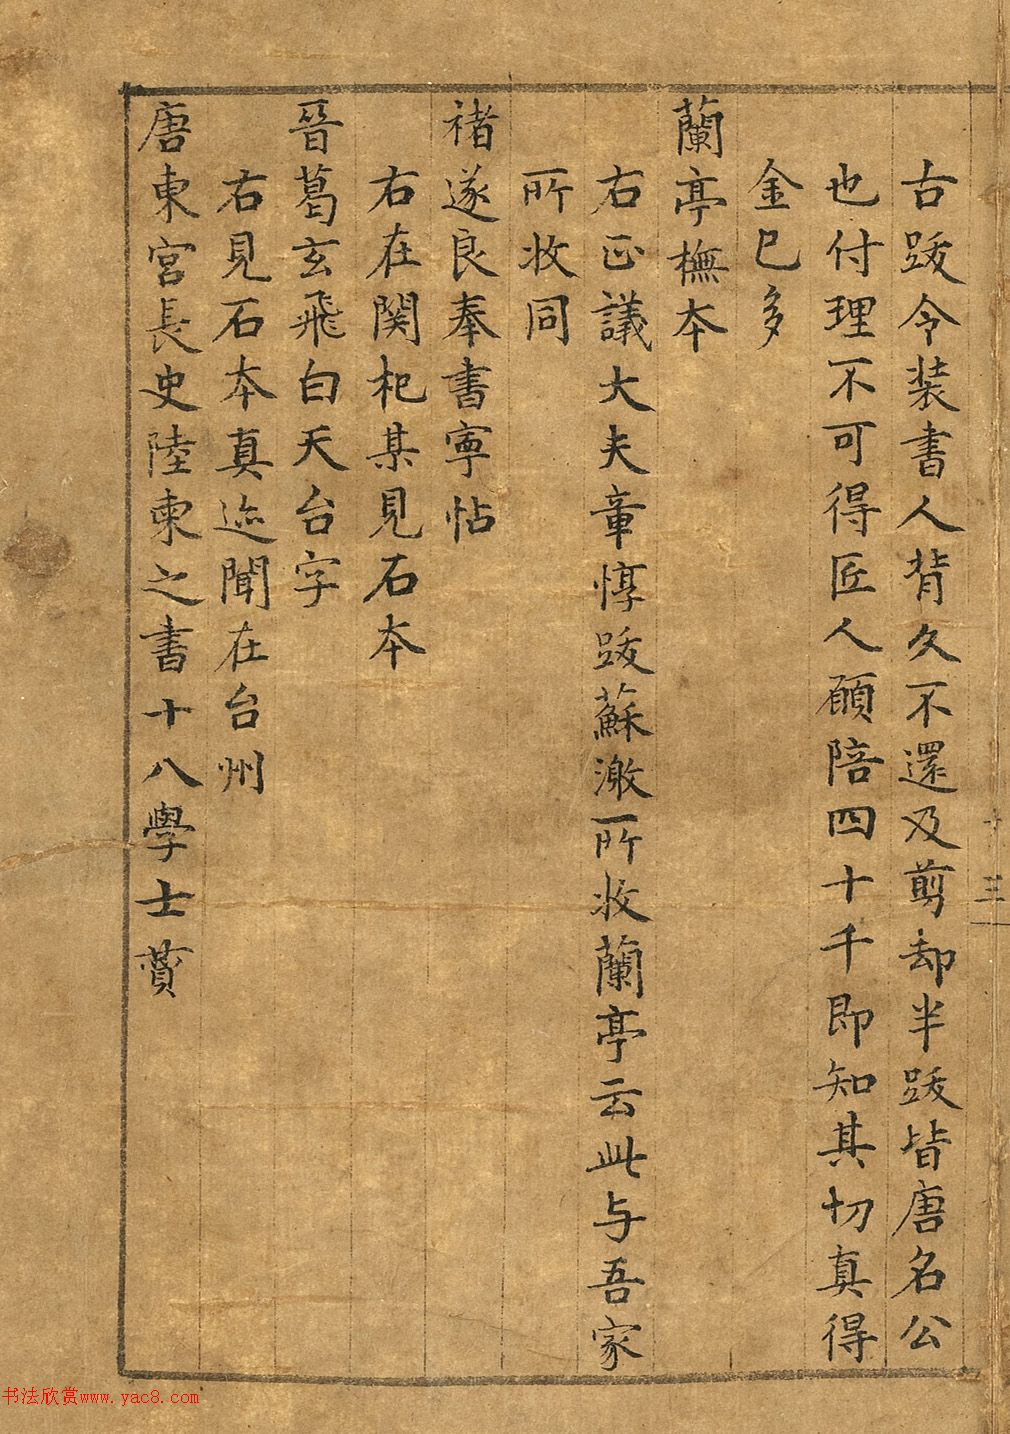 古跋令装書人背久不還及剪却半跋皆唐名公
也付理不可得匠人願陪四十千即知其切真得
金已多
蘭亭橅本
右正議大夫章惇跋蘇澈所收蘭亭云此与吾家
所收同
褚遂良奉書寧帖
右在関杞某見石本
晉葛玄飛白天台字
右見石本真迹聞在台州
唐東宮長史陸柬之書十八學士賛
三
书法欣赏www.yac8.com